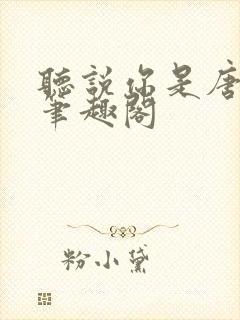 聽說你是唐
筆趣閣
粉小黛